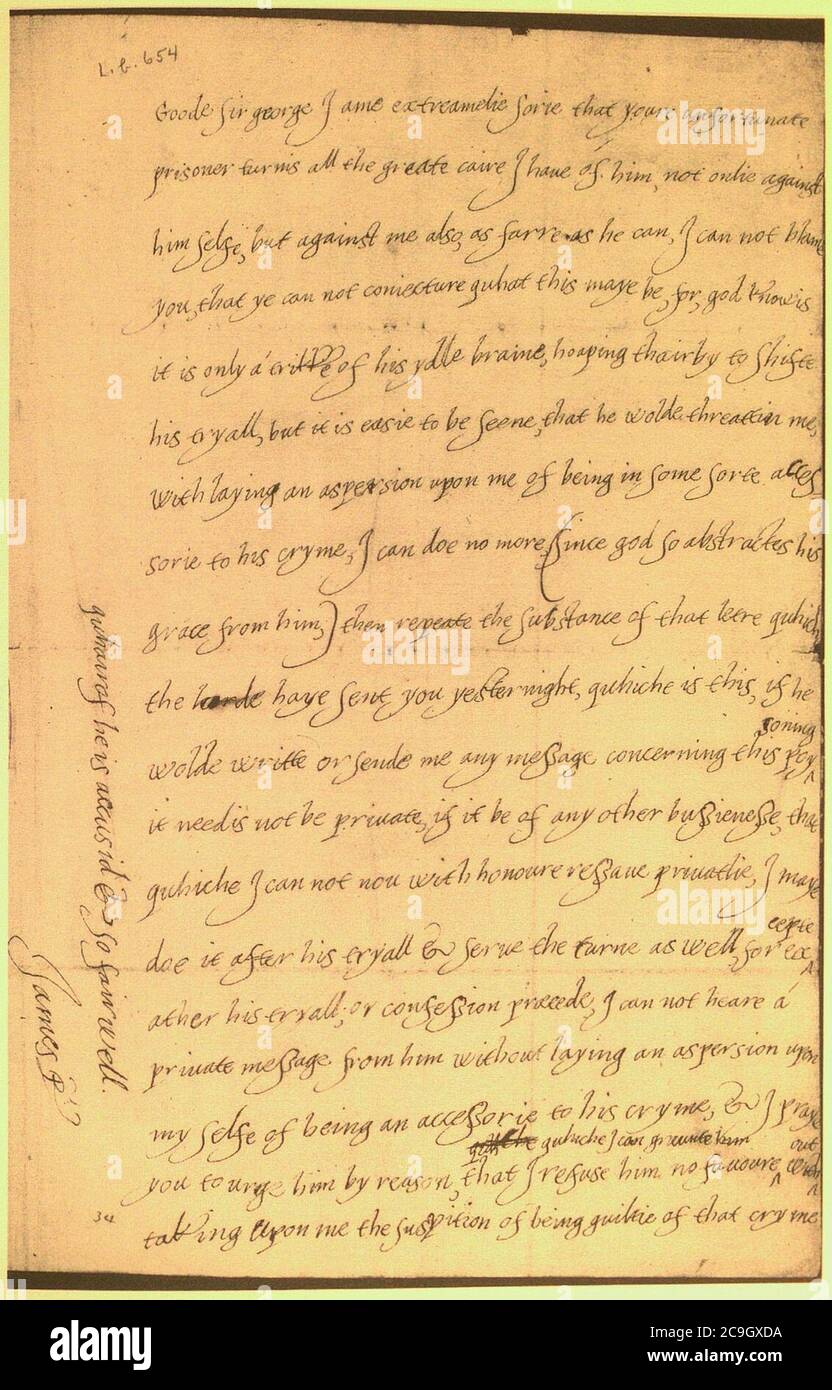 L.b.654
Goode Sir george I ame extreamelie sorie that youre unfortunate
prisoner turnis all the greate caire I have of him, not onlie against
him selfe, but against me also, as farre as he can, I can not blame
you, that ye can not coniecture quhat this maye be, for, god knowis
it is only a trikke of his ydle braine, hoaping thairby to shifte
his tryall, but it is easie to be seene, that he wolde threattin me,
with laying an aspersion upon me of being in some sorte acces
sorie to his cryme, I can doe no more, (since god so abstractes his
grace from him,) then repeate the substance of that letre quhich
the lorde haye sent you yesternight, quhiche is this, if he
soning
wolde writte or sende me any message concerning this poy
it needis not be private, if it be of any other bussienesse, that
quhiche I can not nou with honoure ressave privatlie, I maye
cepte
doe it after his tryall & serve the turne as well, for ex
ather his tryall, or confession præcede, I can not heare a
private message from him without laying an aspersion upon
my selfe of being an accessorie to his cryme, & I praye
quhiche I can graunte him out
you to urge him by reason, that I refuse him no favoure with
taking upon me the suspition of being guiltie of that cryme
quhairof he is accusid & so fairwell.
James R
34
alamy
alamy
Image ID: 2C9GXDA
www.alamy.com